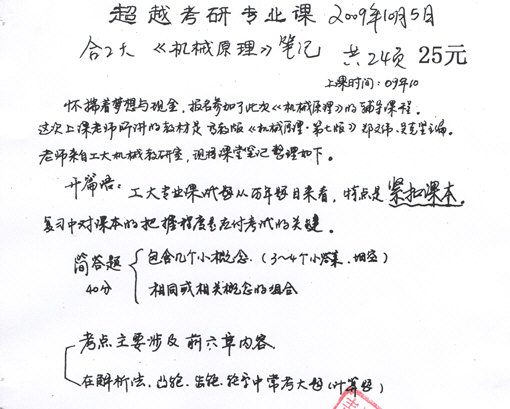 超越考研专业课 2009年10月5日
合工大 《机械原理》笔记 共24页 25元
上课时间：09年10
怀揣着梦想与现金，报名参加了此次《机械原理》的辅导课程。
这次上课老师所讲的教材是高教版《机械原理·第七版》郑文纬、吴克坚主编。
老师来自工大机械教研室，现将课堂笔记整理如下。
开篇语：工大专业课试题从历年题目来看，特点是紧扣课本，
复习中对课本的把握程度是应付考试的关键。
简答题
40分
包含几个小概念.（3～4个小答案、填空）
相同或相关概念的组合
考点主要涉及前六章内容
在解析法、凸轮、齿轮、轮系中常考大题（计算题）